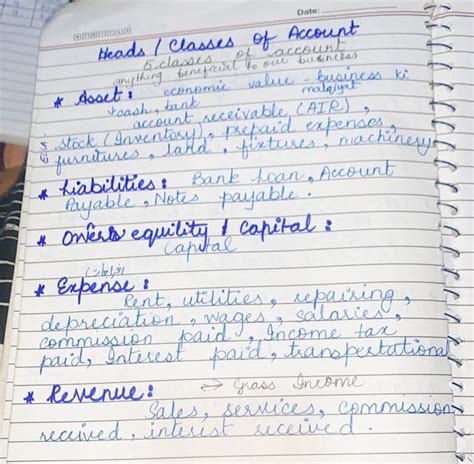 Date:
Heads / Classes of Account
5 classes of account
anything beneficial to our business
* Asset : economic value - business ki malqiyat
→ cash, bank
account receivable (A/R),
Stock (Inventory), prepaid expenses,
furnitures, land, fixtures, machinery
* Liabilities : Bank loan, Account
Payable, Notes payable.
* Owers equility / Capital :
Capital
* Expense :
Rent, utilities, repairing,
depreciation, wages, salaries,
commission paid, Income tax
paid, Interest paid, transpertational
* Revenue : → Grass Income
Sales, services, commission
received, interest received.